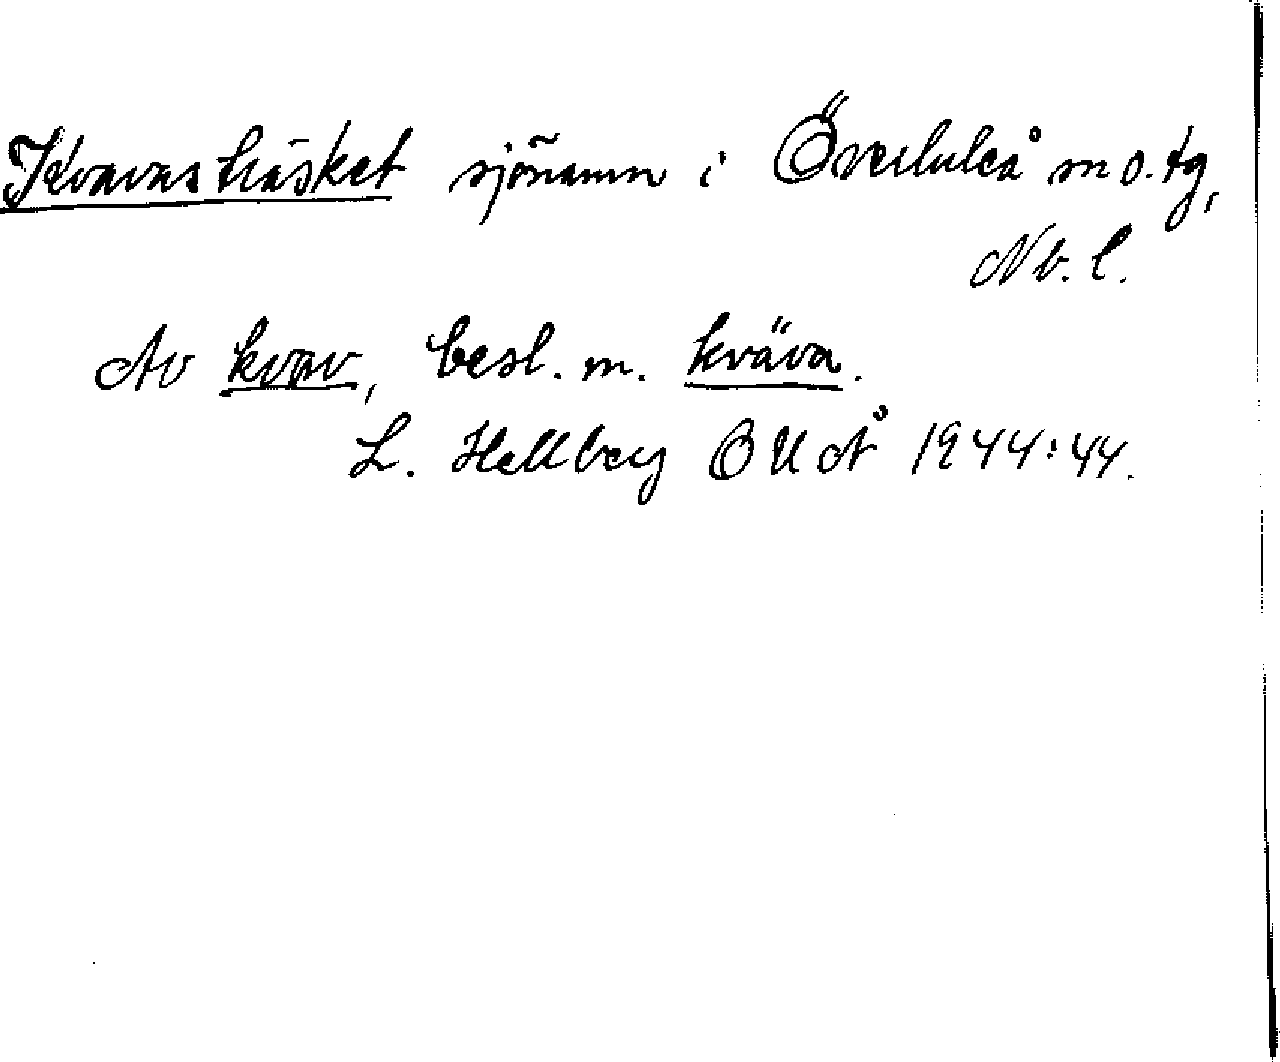 Kvavasträsket sjönamn i Överluleå sn o. tg,
Nb. l.
Av kvav, besl. m. kväva.
L. Hellberg OUÅ 1944:44.